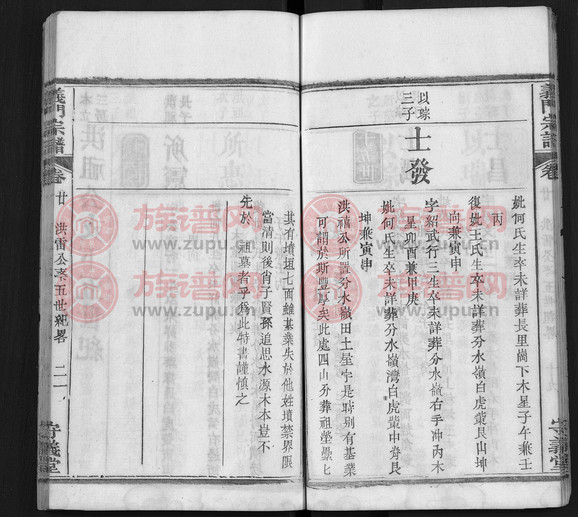 義門宗譜
卷
妣何氏生卒未詳葬長里崗下木星子午兼壬
丙
復妣王氏生卒未詳葬分水嶺白虎螢艮山坤
向兼寅申
以琮
三子
士發
字紹武行三生卒未詳葬分水嶺右手冲內木
星卯酉兼甲庚
妣何氏生卒未詳葬分水嶺灣白虎螢中脊艮
坤兼寅申
洪禎公所置分水嶺田土星宇是時別有基業
可謂於斯豐厚矣此處四山分葬祖塋纍七
崇義堂
義門宗譜
卷
廿 洪雷公 五世紀畧 二一
其有墳垣七面雖基業失於他姓墳禁界限
當清則後肖子賢孫追思水源木本豈不
先於 邱墓者乎為此特書謹慎之
崇義堂
族谱网
www.zupu.cn
族谱网
www.zupu.cn